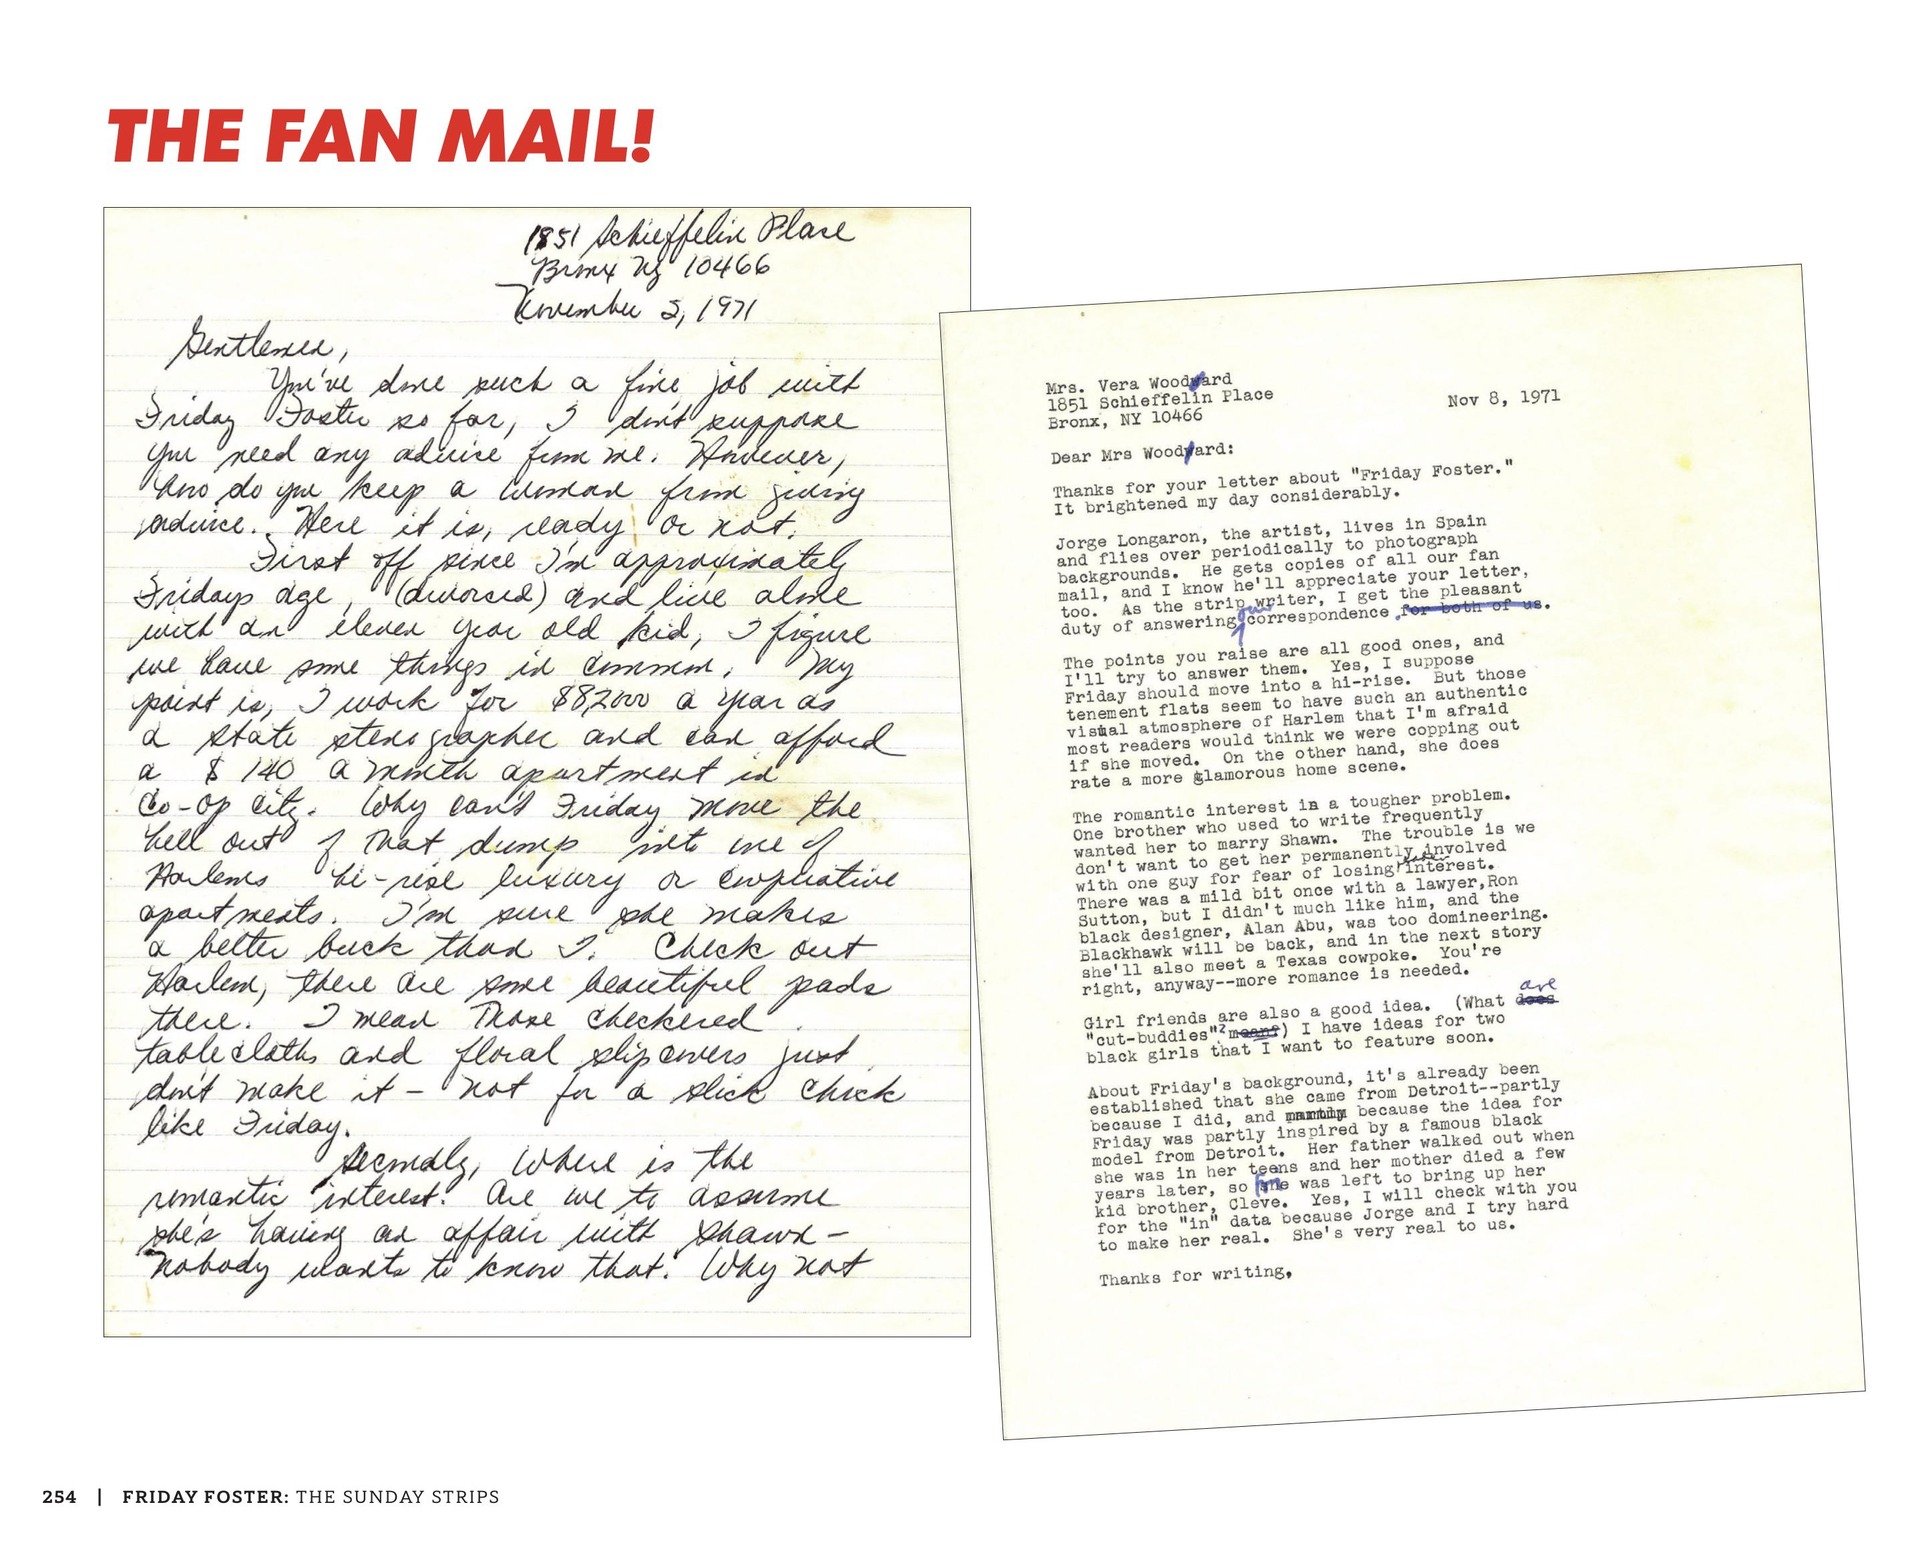 THE FAN MAIL!
1851 Schieffelin Place
Bronx Ny 10466
November 2, 1971
Gentlemen,
You've done such a fine job with
Friday Foster so far, I don't suppose
you need any advice from me. However,
how do you keep a woman from giving
advice. Here it is, ready or not.
First off since I'm approximately
Fridays age, (divorced) and live alone
with an eleven year old kid, I figure
we have some things in common. My
point is, I work for $8,2000 a year as
a state stenographer and can afford
a $140 a month apartment in
Co-op City. Why can't Friday move the
hell out of that dump into one of
Harlems hi-rise luxury or cooperative
apartments. I'm sure she makes
a better buck than I. Check out
Harlem, there are some beautiful pads
there. I mean those checkered
tablecloths and floral slipcovers just
don't make it – not for a slick chick
like Friday.
Secondly, Where is the
romantic interest. Are we to assume
she's having an affair with Shawn –
nobody wants to know that. Why not
Mrs. Vera Woodward
1851 Schieffelin Place
Bronx, NY 10466
Nov 8, 1971
Dear Mrs Woodward:
Thanks for your letter about "Friday Foster."
It brightened my day considerably.
Jorge Longaron, the artist, lives in Spain
and flies over periodically to photograph
backgrounds. He gets copies of all our fan
mail, and I know he'll appreciate your letter,
too. As the strip writer, I get the pleasant
duty of answering our correspondence. for both of us.
The points you raise are all good ones, and
I'll try to answer them. Yes, I suppose
Friday should move into a hi-rise. But those
tenement flats seem to have such an authentic
visual atmosphere of Harlem that I'm afraid
most readers would think we were copping out
if she moved. On the other hand, she does
rate a more glamorous home scene.
The romantic interest in a tougher problem.
One brother who used to write frequently
wanted her to marry Shawn. The trouble is we
don't want to get her permanently involved
with one guy for fear of losing interest.
There was a mild bit once with a lawyer,Ron
Sutton, but I didn't much like him, and the
black designer, Alan Abu, was too domineering.
Blackhawk will be back, and in the next story
she'll also meet a Texas cowpoke. You're
right, anyway--more romance is needed.
Girl friends are also a good idea. (What does are
"cut-buddies"? mean?) I have ideas for two
black girls that I want to feature soon.
About Friday's background, it's already been
established that she came from Detroit--partly
because I did, and partly because the idea for
Friday was partly inspired by a famous black
model from Detroit. Her father walked out when
she was in her teens and her mother died a few
years later, so she was left to bring up her
kid brother, Cleve. Yes, I will check with you
for the "in" data because Jorge and I try hard
to make her real. She's very real to us.
Thanks for writing,
254 | FRIDAY FOSTER: THE SUNDAY STRIPS